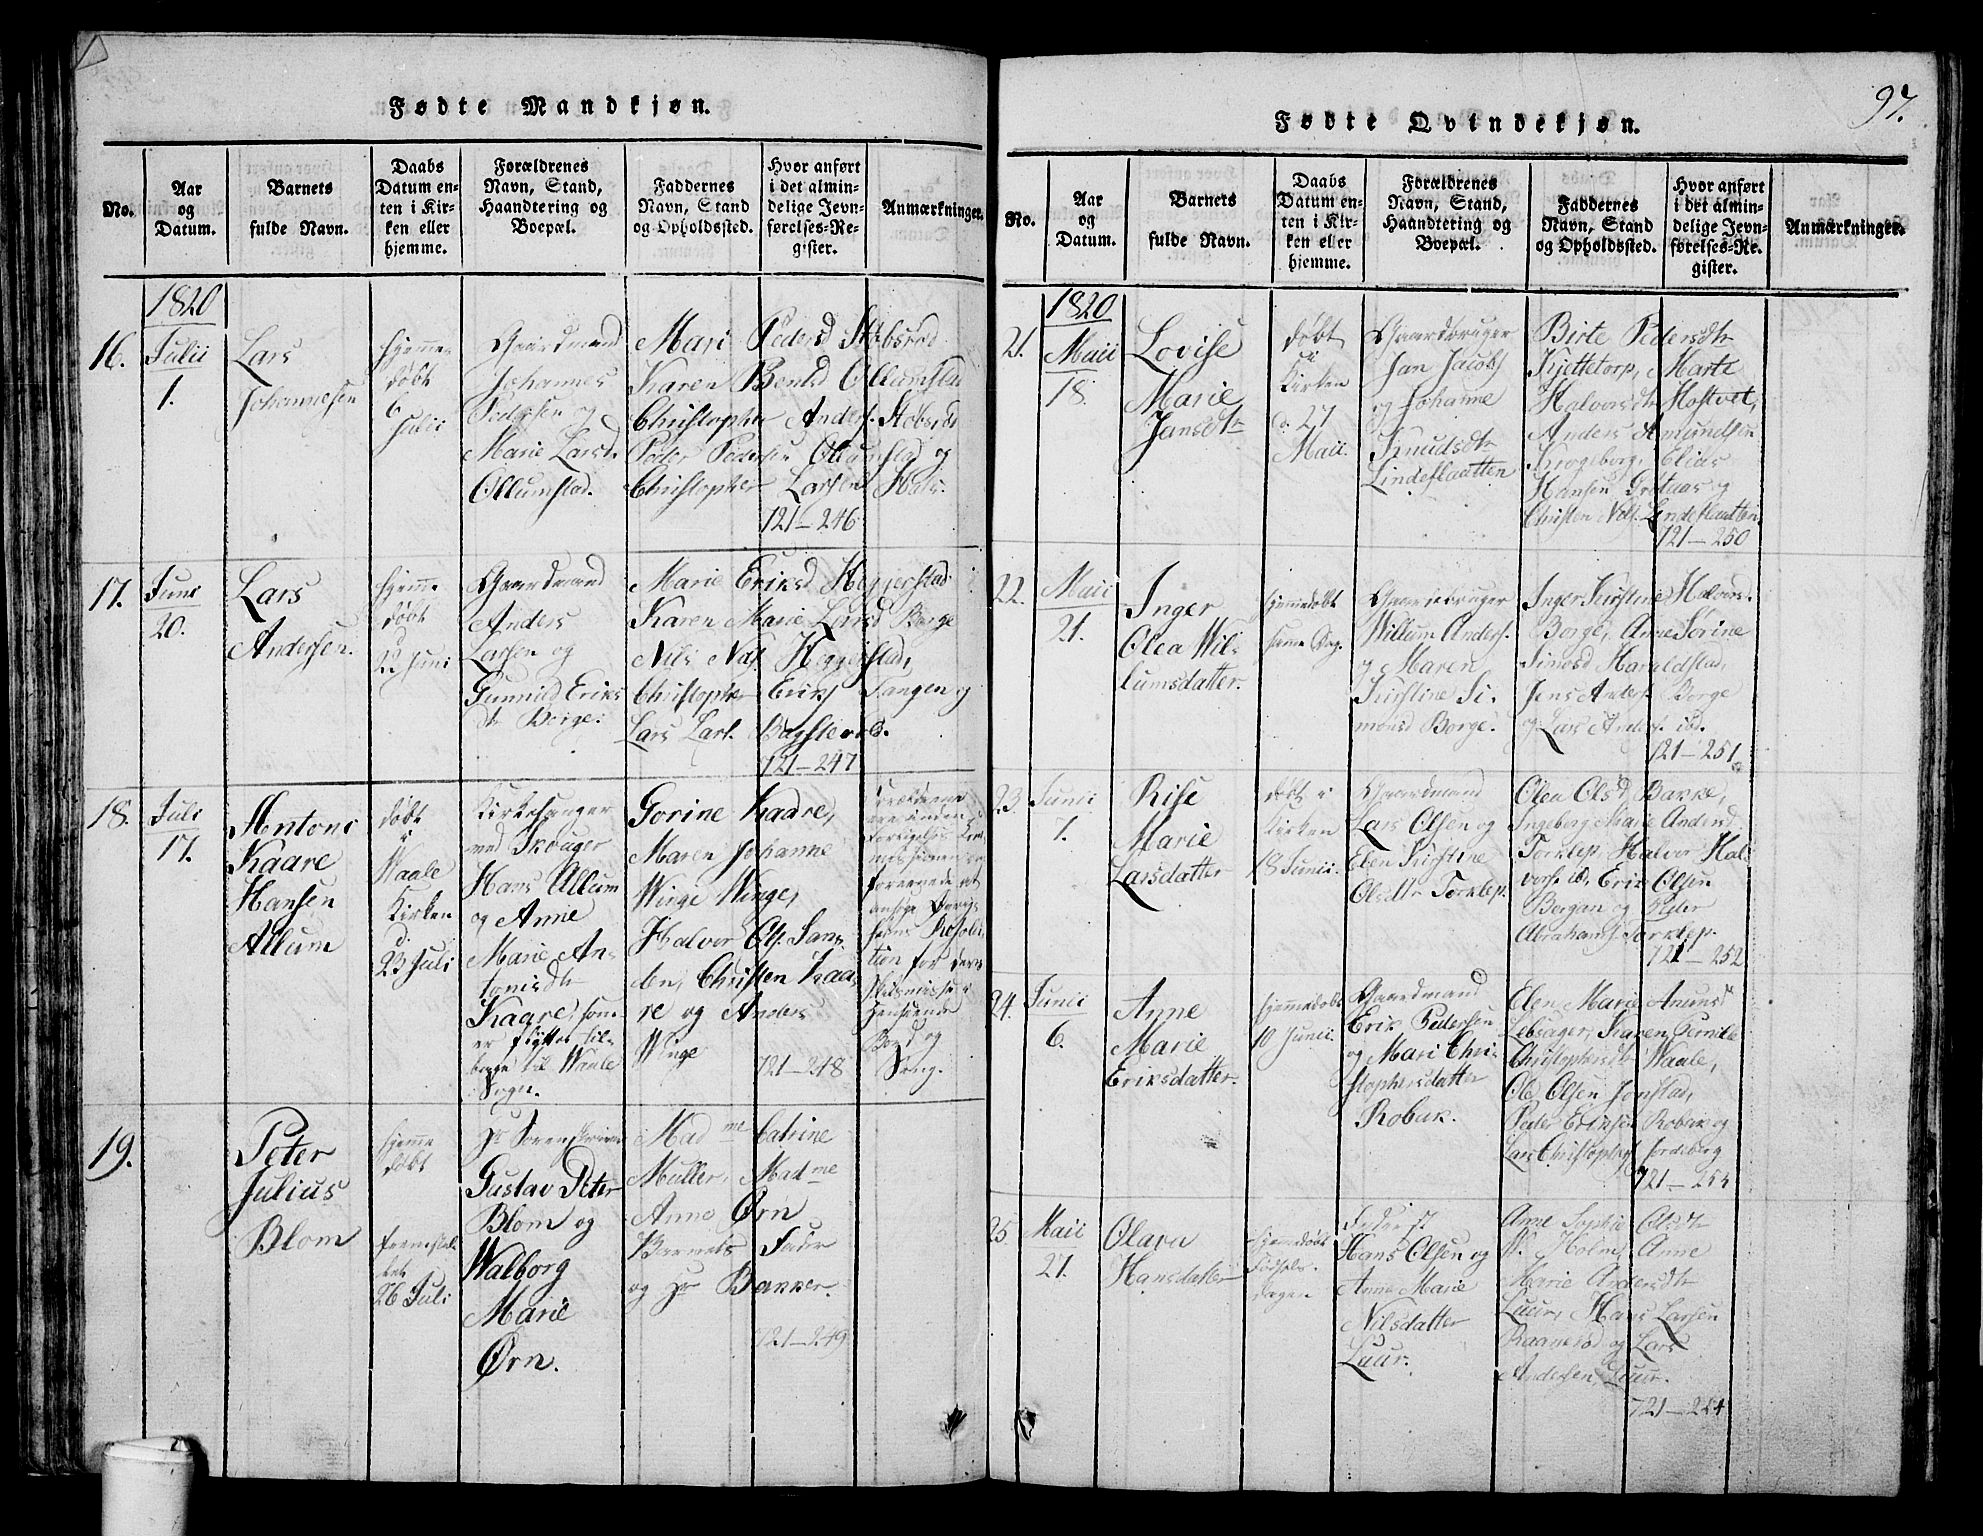 Fødte Mandkjøn.
No.
Aar
og
Datum.
Barnets
fulde Navn.
Daabs
Datum en-
ten i Kir-
ken eller
hjemme.
Forældrenes
Navn, Stand,
Haandtering og
Boepæl.
Faddernes
Navn, Stand
og Opholdssted.
Hvor anført
i det almin-
delige Jevn-
førelses-Re-
gister.
Anmærkninger.
1820
16.
Julii
1.
Lars
Johannesen
Hjemme
døbt
6
Julii
Gaardmand
Johannes
Pedersen og
Marie Larsd.
Ollumstad.
Mari Pedersd
Karen Bentsd Ollumstad
Christopher Anders.
Peder Pedersen Ollumstad og
Christopher Larsen Hals.
121-246
17.
Juni
20.
Lars
Andersen.
Hjemme
døbt
22 Juni
Gaardmand
Anders
Larsen og
Gunnild Eriks
dr Borge.
Marie Eriksd Heggerstad
Karen Marie Larsd Borge
Nils Heggerstad,
Christopher Eriks Tangen og
Lars Lars.
121-247
18.
Juli
17.
Antoni
Kaare
Hansen
Allum
døbt
i
Waale
Kirken
d.
23 Juli
Kirkesanger
ved Skouger
Hans Allum
og Anne
Marie An-
tonisdtr
Kaare, som
er flyttet til-
bage til Waale
Sogn.
Gorine Kaare,
Maren Johanne
Winge Winge,
Halvor Ols. Sans
Christen Kaa-
re og Anders
Winge
121-248
Forældrene
for deres
Skilsmisse i
Henseende
Bord og
Seng.
19.
Peter
Julius
Blom
Hjemme
døbt
fremstil-
let
26 Juli
Hr Sorenskriver
Gustav Peter
Blom og
Walborg
Marie
Ørn.
Madme Catrine
Müller, Madme
Anne Ørn
Barnets Fader
og Hr Bakker.
121-249
97.
Fødte Qvindekjøn.
No.
Aar
og
Datum.
Barnets
fulde Navn.
Daabs
Datum en-
ten i Kir-
ken eller
hjemme.
Forældrenes
Navn, Stand,
Haandtering og
Boepæl.
Faddernes
Navn, Stand
og Opholdssted.
Hvor anført
i det almin-
delige Jevn-
førelses-Re-
gister.
Anmærkninger.
1820
21.
Maii
18.
Lovise
Marie
Jansdtr
døbt
i
Kirken
d. 27
Maii.
Gaardbruger
Jan Jacobs
og Johanne
Knudsdtr
Lindeflaatten
Birte Pedersdtr
Marte
Halvorsdtr
Anders Amundsen
Krogeborg, Elias
Hansen Grotaas og
Christen Nils. Lindeflaatten
121-250
22.
Maii
21.
Inger
Olea Wil-
lumsdatter.
Hjemmedøbt
samme Dag.
Gaardbruger
Willum Anders.
og Maren
Kirstine Si-
monsd Borge.
Inger Kirstine Halvors.
Borge, Anne Sörine
Simonsd Haraldstad,
Jens Anders. Borge
og Lars Anders. ibd.
121-251
23.
Junii
7.
Rise
Marie
Larsdatter
døbt i
Kirken
18 Junii.
Gaardmand
Lars Olsen og
Elen Kirstine
Olsdtr Torklep.
Olea Olsd, Bakke,
Ingeborg Marie Andersd
Torklep, Halvor Hal-
vors. ibd, Erik Olsen
Bergan og
Abrahams. Torklep.
121-252
24.
Junii
6.
Anne
Marie
Eriksdatter.
Hjemmedøbt
10 Junii.
Gaardmand
Erik Pedersen
og Mari Chri-
stophersdatter
Robak.
Elen Marie
Lebsager, Karen Pernille
Christophersdtr Waale,
Ole Olsen Jonstad,
Peder Eriksen Robak og
Lars Christophs.
121-253
25.
Maii
27.
Olava
Hansdatter
Hjemmedøbt
Fødsels-
dagen
Hans Olsen og
Anne Marie
Nilsdatter
Luur.
Anne Sophie Olsdtr
W. Holm, Anne
Marie Andersdtr
Luur, Hans Larsen
og Lars
Andersen, Luur.
121-254